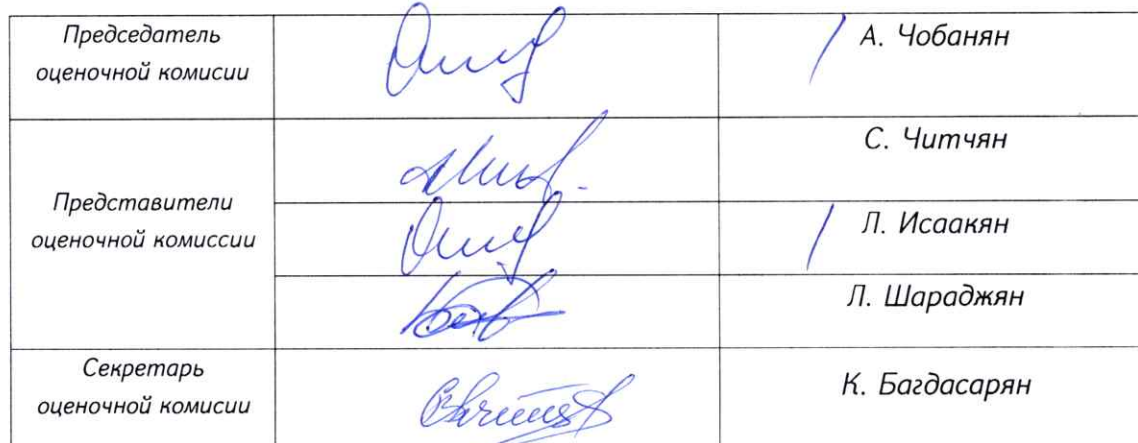 Председатель
оценочной комисии
А. Чобанян
С. Читчян
Представители
оценочной комиссии
Л. Исаакян
Л. Шараджян
Секретарь
оценочной комисии
К. Багдасарян